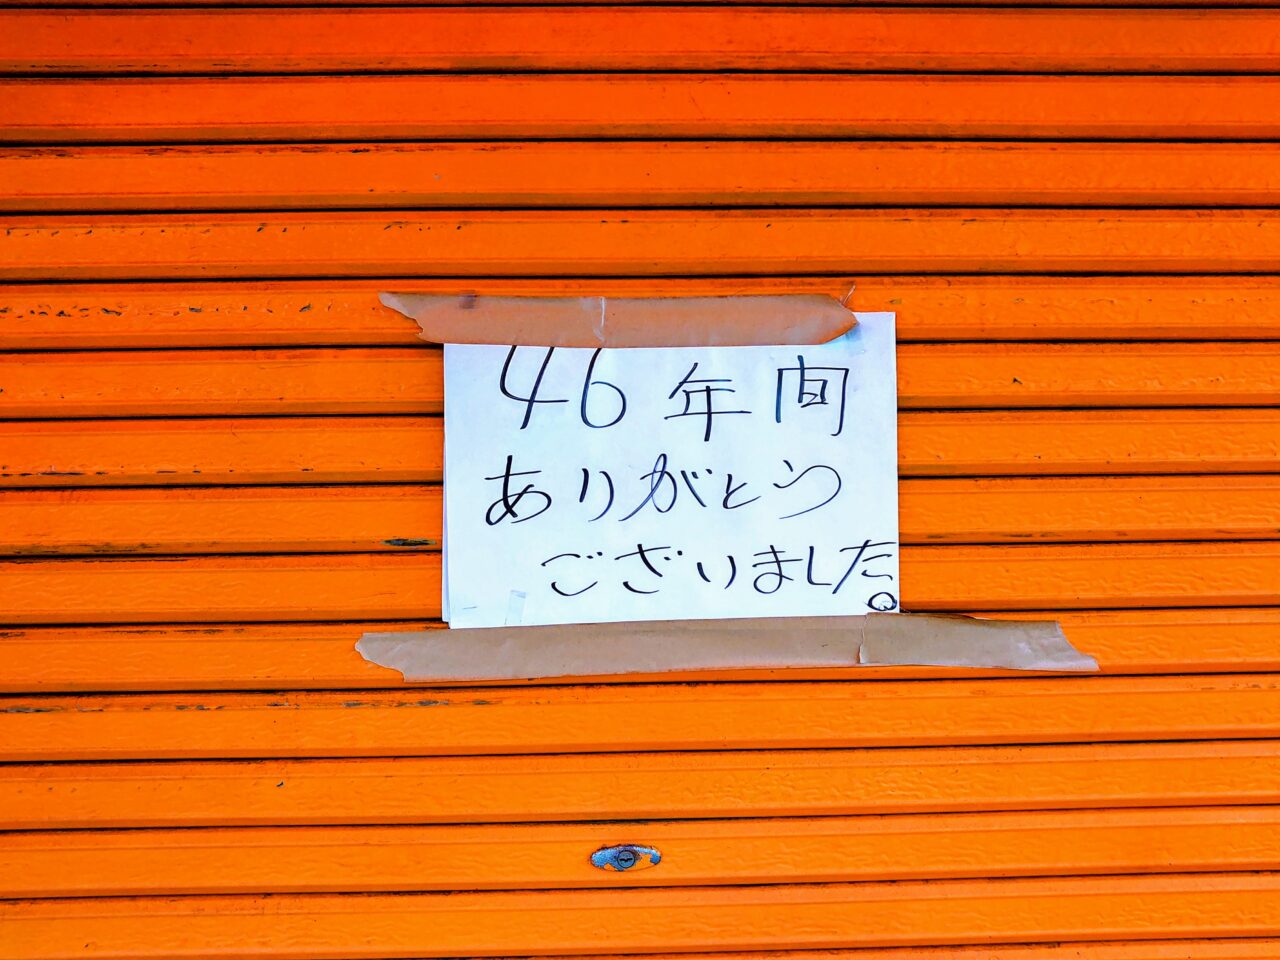 46年間
ありがとう
ございました。